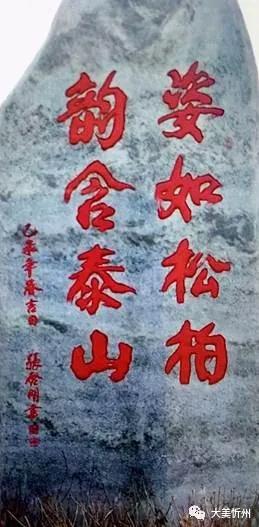 姿如松柏
韵含泰山
乙未年春吉日 張
大美忻州